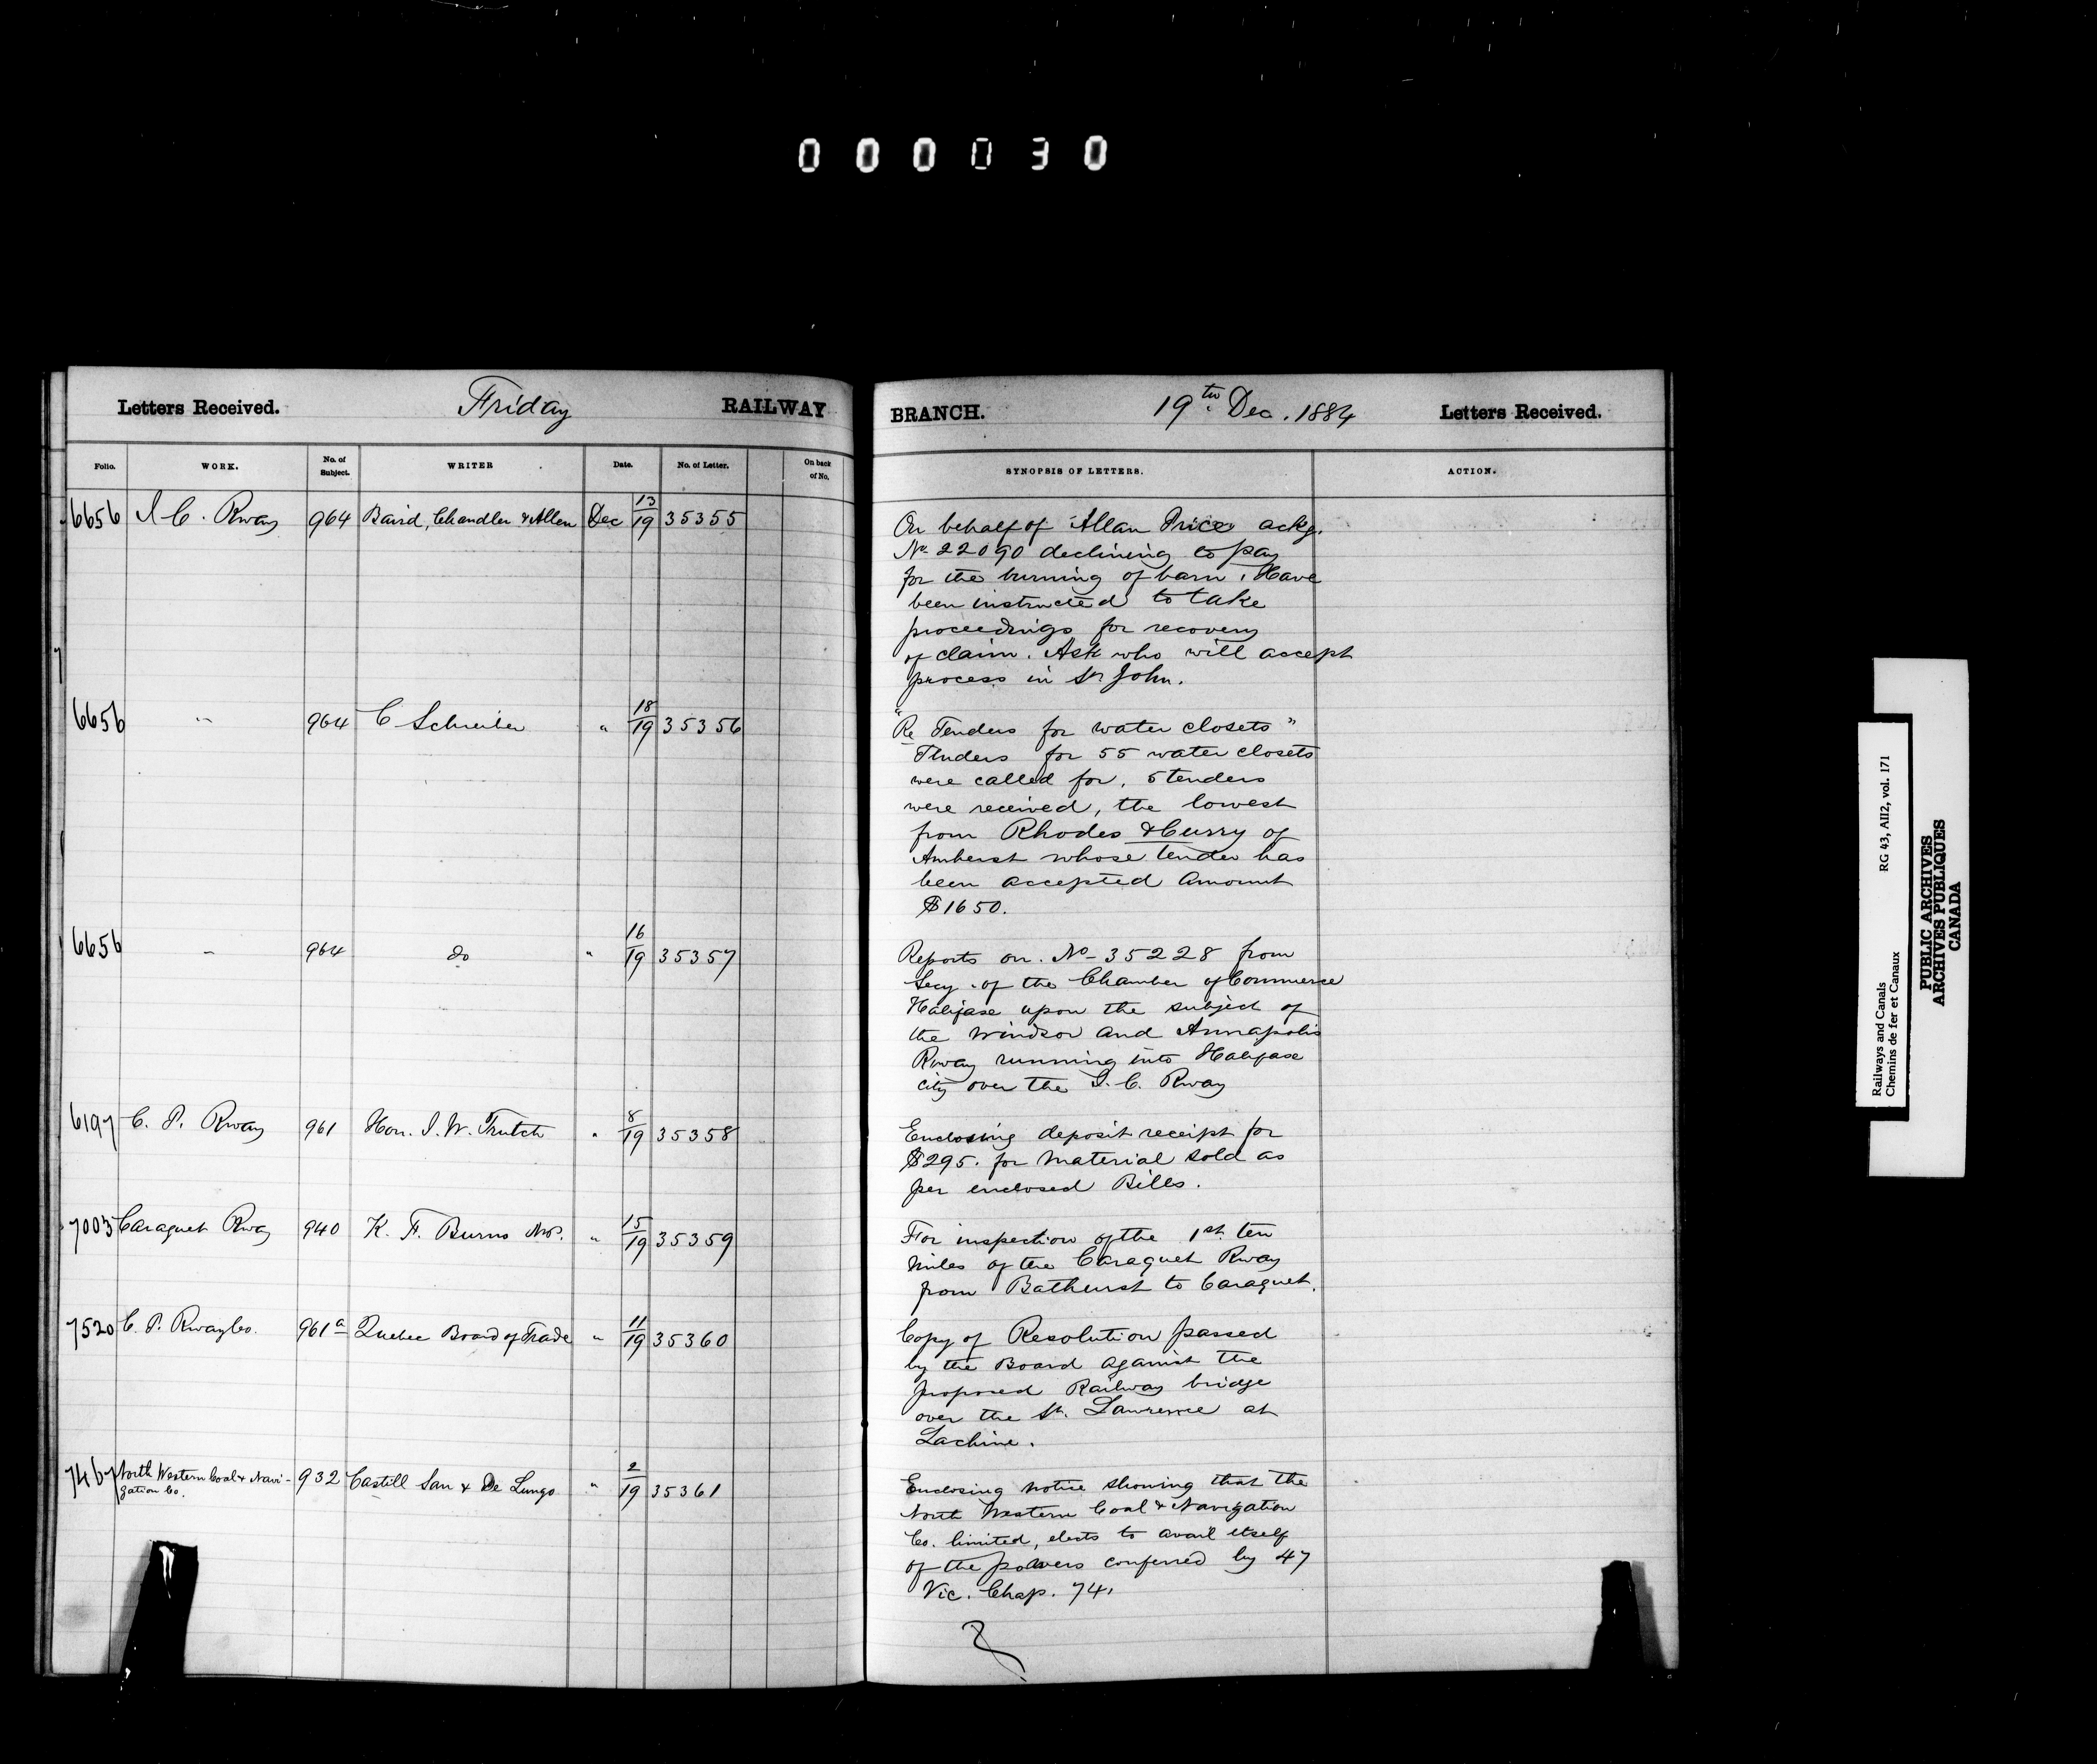 000030
Letters Received. Friday RAILWAY
Folio. WORK. No. of Subject. WRITER Date. No. of Letter. On back of No.
6656 I C. Rway 964 Baird, Chandler & Allen Dec 13/19 35355
6656 " 964 C Schreiber " 18/19 35356
6656 " 964 do " 16/19 35357
6197 C. P. Rway 961 Hon. J. W. Trutch " 8/19 35358
7003 Caraquet Rway 940 K. F. Burns M.P. " 15/19 35359
7520 C. P. Rway Co. 961a Quebec Board of Trade " 11/19 35360
7467 North Western Coal & Navi-
gation Co. 932 Castill San & De Lungo " 2/19 35361
BRANCH. 19th Dec. 1884 Letters Received.
SYNOPSIS OF LETTERS. ACTION.
On behalf of Allan Price ackg.
No 22090 declining to pay
for the burning of barn. Have
been instructed to take
proceedings for recovery
of claim. Ask who will accept
process in St John.
"Re Tenders for water closets"
Tenders for 55 water closets
were called for, 5 tenders
were received, the lowest
from Rhodes & Curry of
Amherst whose tender has
been accepted Amount
$1650.
Reports on No 35228 from
Secy. of the Chamber of Commerce
Halifax upon the subject of
the Windsor and Annapolis
Rway running into Halifax
city over the I. C. Rway
Enclosing deposit receipt for
$295. for material sold as
per enclosed Bills.
For inspection of the 1st ten
miles of the Caraquet Rway
from Bathurst to Caraquet.
Copy of Resolution passed
by the Board against the
proposed Railway bridge
over the St. Lawrence at
Lachine.
Enclosing notice showing that the
North Western Coal & Navigation
Co. limited, elects to avail itself
of the powers conferred by 47
Vic. Chap. 74.
Railways and Canals RG 43, AII2, vol. 171
Chemins de fer et Canaux
PUBLIC ARCHIVES
ARCHIVES PUBLIQUES
CANADA